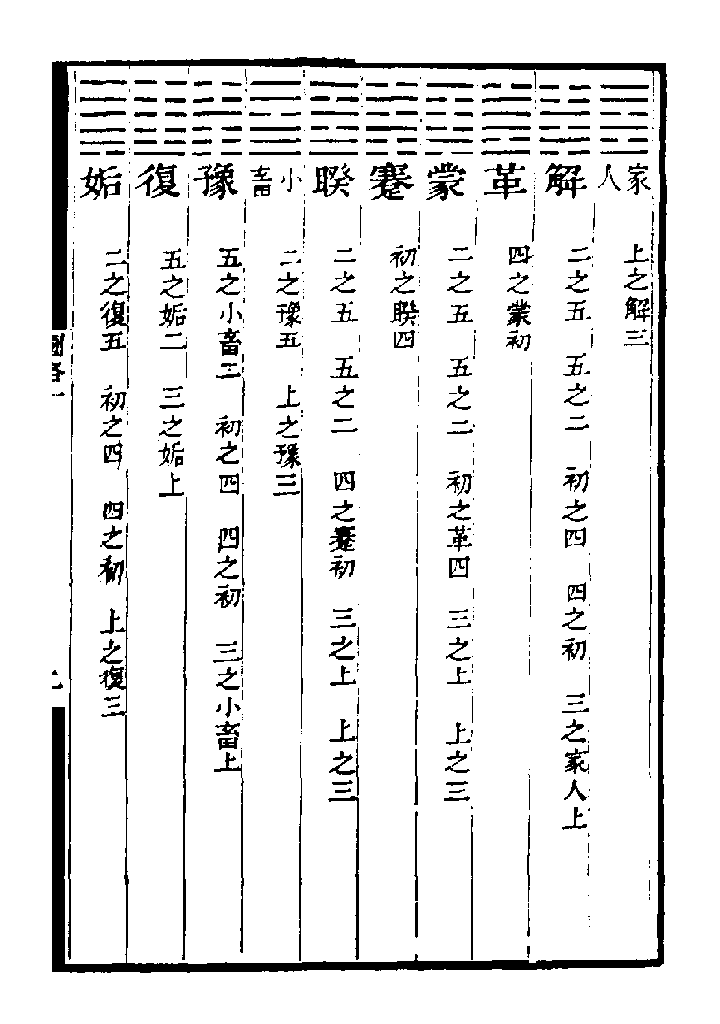 家人 上之解三
解 二之五 五之二 初之四 四之初 三之家人上
革 四之蒙初
蒙 二之五 五之二 初之革四 三之上 上之三
蹇 初之睽四
睽 二之五 五之二 四之蹇初 三之上 上之三
小畜 二之豫五 上之豫三
豫 五之小畜二 初之四 四之初 三之小畜上
復 五之姤二 三之姤上
姤 二之復五 初之四 四之初 上之復三